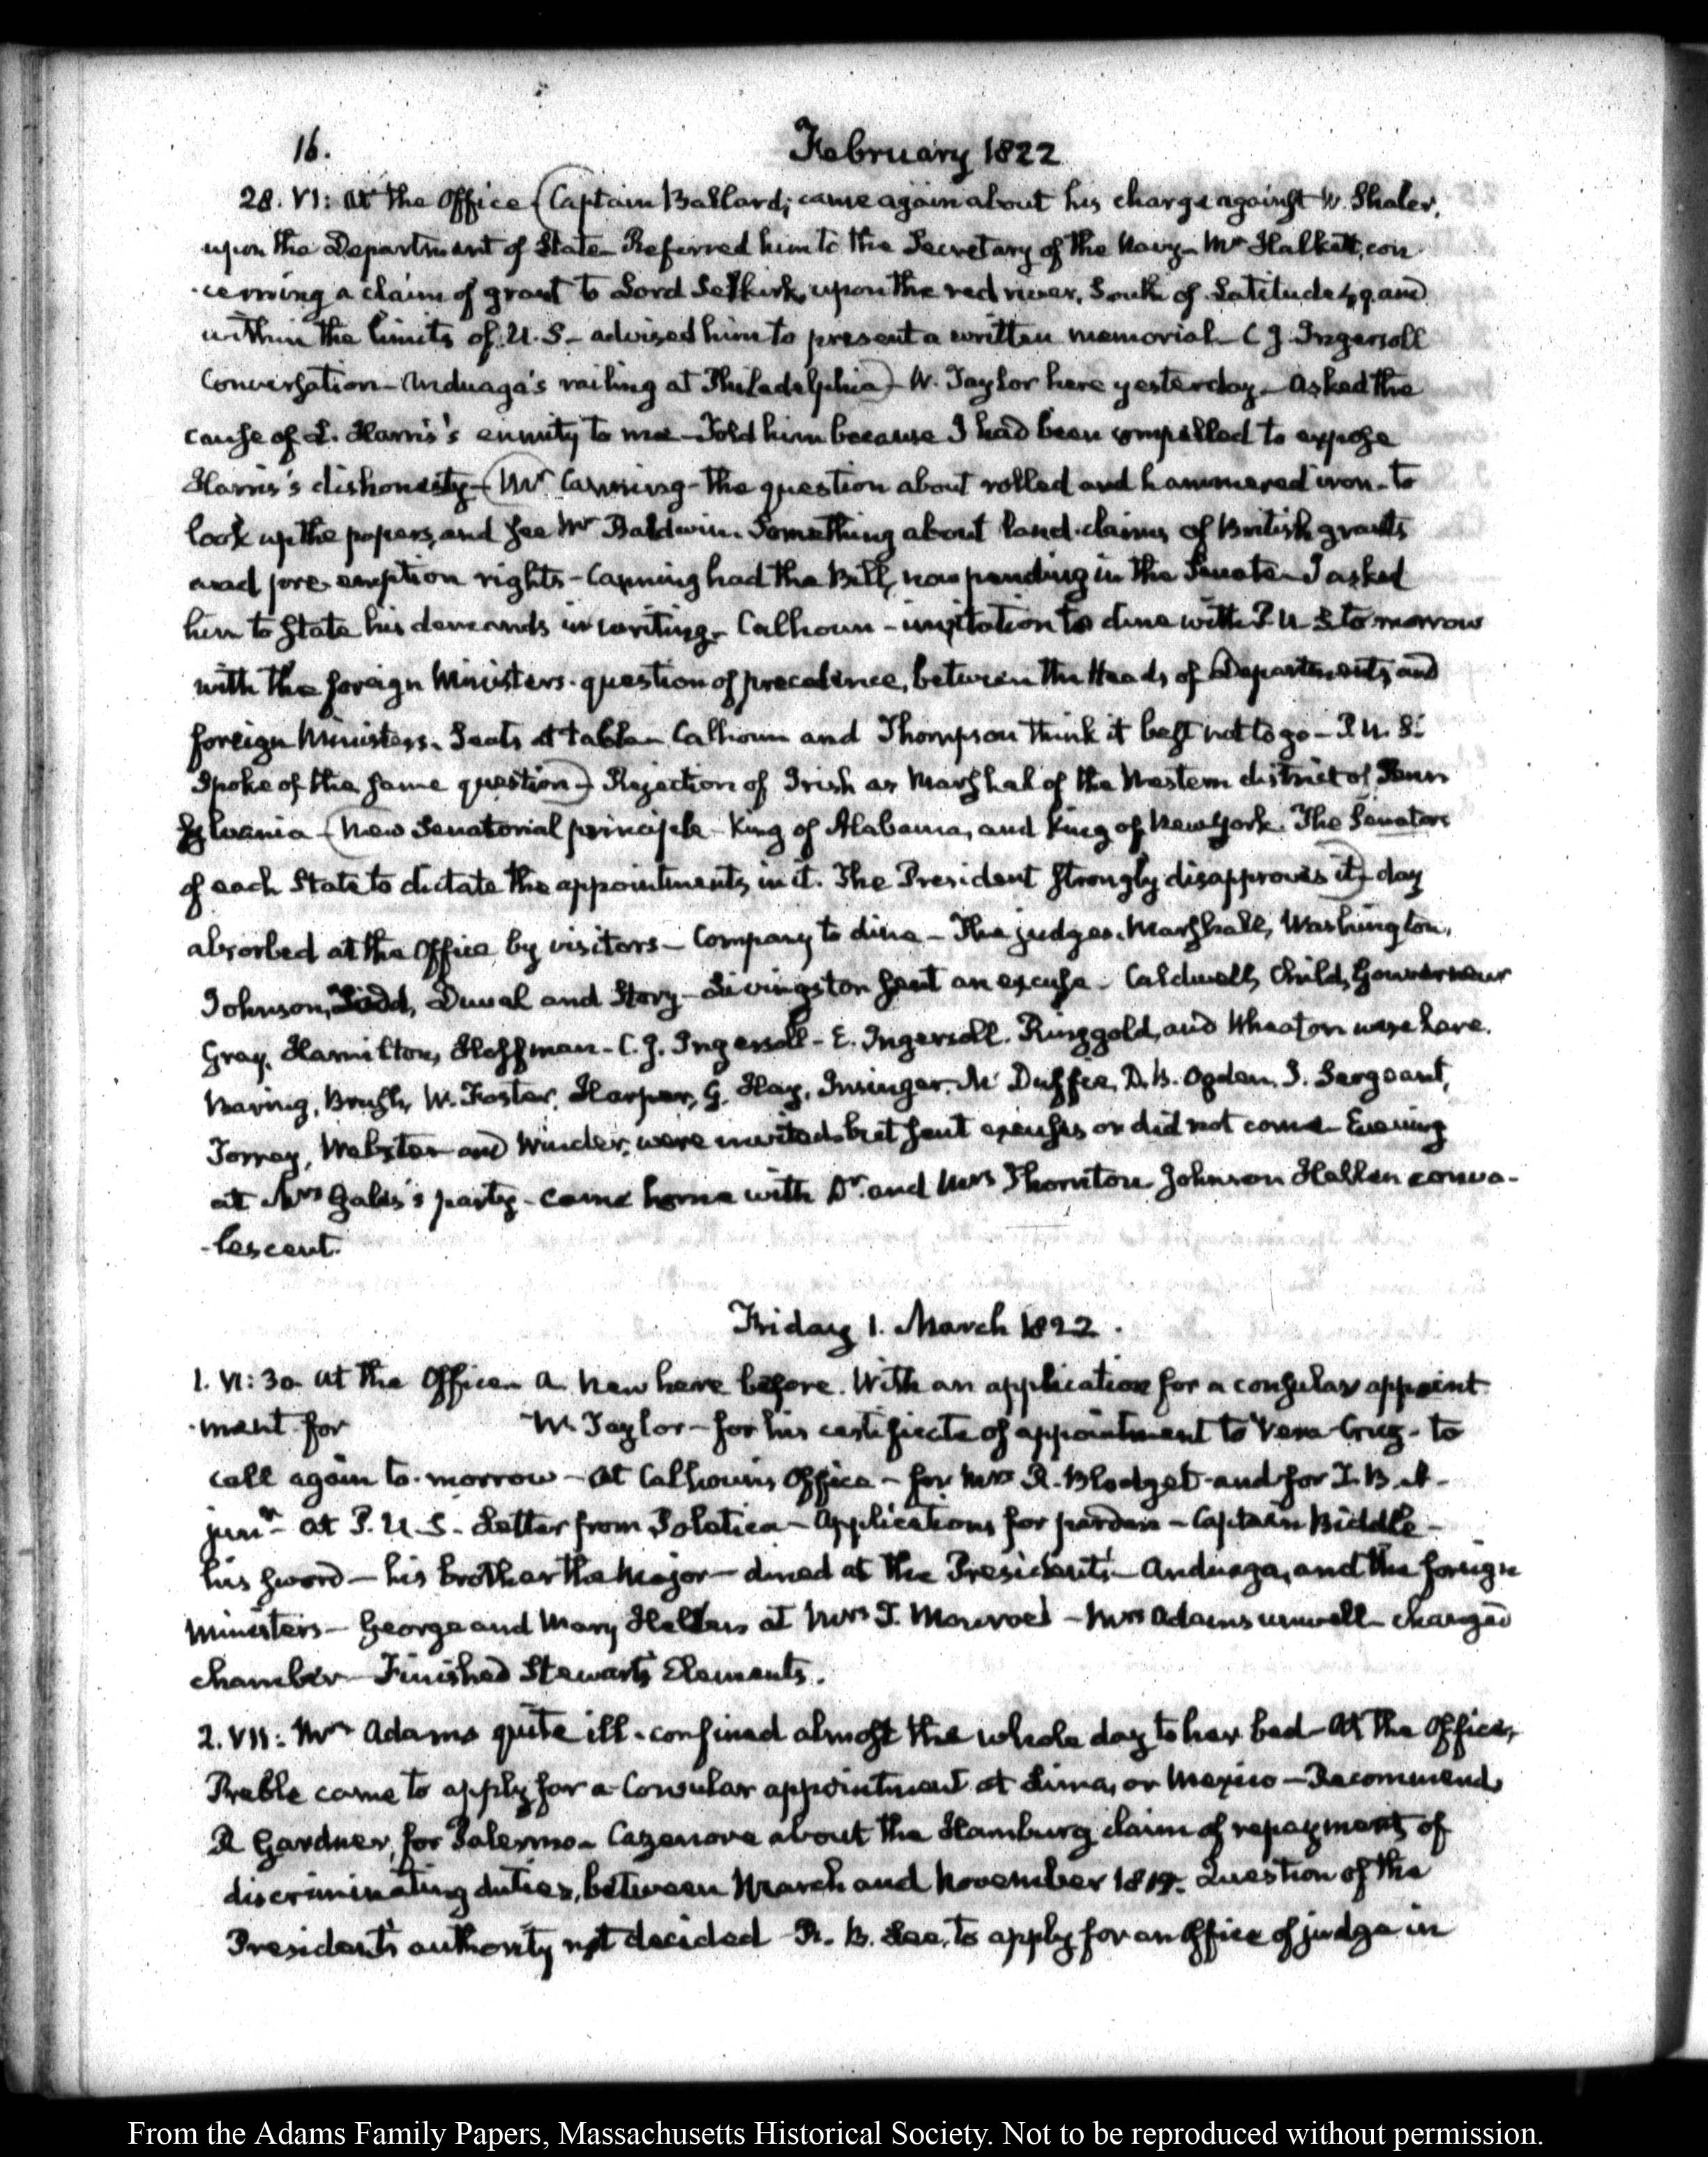 16. February 1822
28. VI: At the Office (Captain Ballard; came again about his charge against W. Shaler,
upon the Department of State Referred him to the Secretary of the Navy – Mr Halkett, con
-cerning a claim of grant to Lord Selkirk, upon the red river, South of Latitude 49 and
within the limits of U.S – advised him to present a written memorial – C J. Ingersoll
Conversation – Anduaga's railing at Philadelphia) – W. Taylor here yesterday – Asked the
cause of L. Harris's enmity to me – Told him because I had been compelled to expose
Harris's dishonesty – (Mr Canning – the question about rolled and hammered iron – to
look up the papers, and see Mr Baldwin. Something about land-claims of British grants
and pre-emption rights – Canning had the Bill, now pending in the Senate – I asked
him to State his demands in writing – Calhoun – invitation to dine with P U S to morrow
with the foreign Ministers – question of precedence, between the Heads of Departments, and
foreign Ministers. Seats at table – Calhoun and Thompson think it best not to go – P. U. S.
Spoke of the same question) – Rejection of Irish as Marshal of the Western district of Penn
sylvania – (New Senatorial principle – King of Alabama, and King of New York. The Senators
of each State to dictate the appointments, in it. The President strongly disapproves it) – day
absorbed at the Office by visitors – Company to dine – The judges. Marshall, Washington,
Johnson, Todd, Duval and Story – Livingston sent an excuse – Caldwell, Child, Gouverneur
Gray, Hamilton, Hoffman – C. J. Ingersoll – E. Ingersoll. Ringgold, and Wheaton were here.
Baring, Brush, W. Foster, Harper, G. Hay, Insinger, Mc Duffie, D. B. Ogden, J. Sergeant,
Torrey, Webster and Winder, were invited but sent excuses or did not come – Evening
at Mrs Gales's party – came home with Dr. and Mrs Thornton Johnson Hellen conva-
-lescent.
Friday 1. March 1822.
1. VI: 30 at the Office – A. New here before. With an application for a consular appoint
-ment for W. Taylor – for his certificate of appointment to Vera-Cruz – to
call again to-morrow – At Calhoun's Office – for Mrs R. Blodget and for T. B. A –
junr – at P. U. S – Letter from Poletica – Applications for pardon – Captain Biddle –
his sword – his brother the Major – dined at the President's – Anduaga, and the foreign
Ministers – George and Mary Hellen at Mrs T. Monroe's – Mrs Adams unwell – changed
chamber – Finished Stewart's Elements.
2. VII: Mrs Adams quite ill – confined almost the whole day to her bed – At the Office,
Preble came to apply for a Consular appointment at Lima, or Mexico – Recommends
R Gardner, for Palermo – Cazenove about the Hamburg claim of repayment of
discriminating duties, between March and November 1819. Question of the
President's authority not decided – R. B. Lee, to apply for an Office of judge in
From the Adams Family Papers, Massachusetts Historical Society. Not to be reproduced without permission.